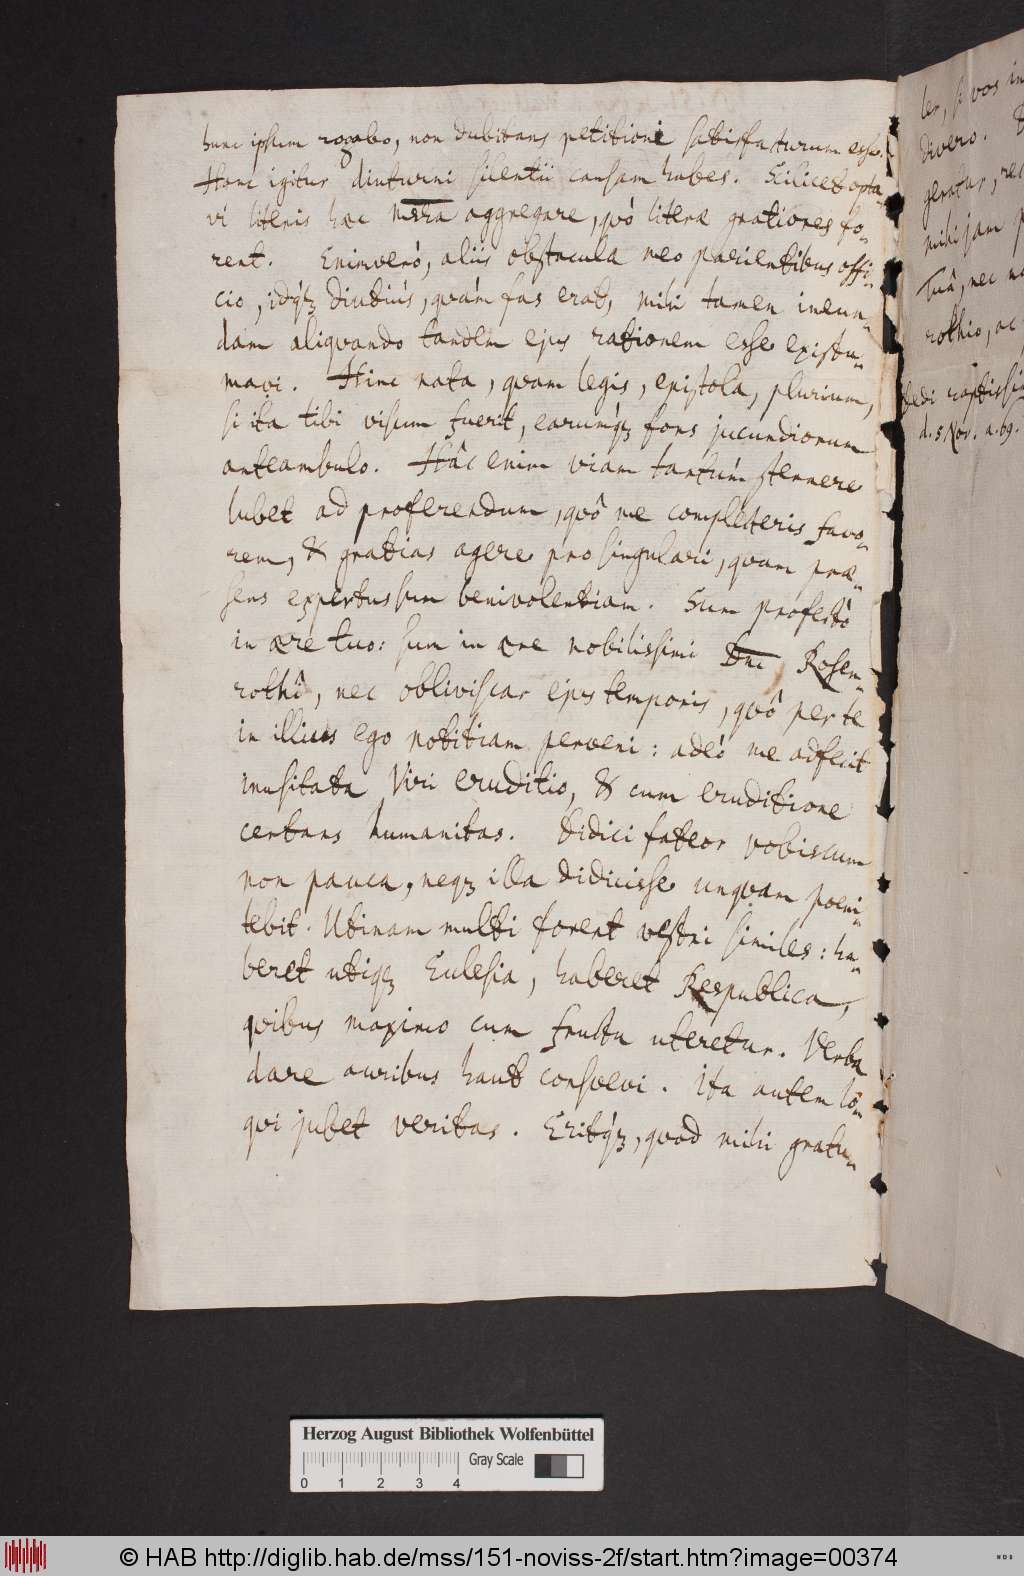 hunc ipsum rogabo, non dubitans petitioni satisfacturum esse.
Hanc igitur diuturni silentii causam habes. Scilicet opta-
vi literis hac nostra aggregare, quò literæ gratiores fo-
rent. Enimverò, aliis obstacula meo parientibus offi-
cio, idq́ꝫ diudiús, quám fas erat, mihi tamen ineun-
dam aliquando tandem ejus rationem esse existu-
mavi. Hinc nata, quam legis, epistola, plurium,
si ita tibi visum fuerit, earumq́ꝫ fons jucundiorum
anteambulo. Hâc enim viam tantúm sternere
lubet ad proferendum, quô me complecteris favo-
rem, & gratias agere pro singulari, quam præ-
sens expertus sum benivolentiam. Sum profectò
in ære tuo: sum in ære nobilissimi Dni Rosen-
rothî, nec obliviscar ejus temporis, quô per te
in illius ego notitiam perveni: adeò me adfecit
inusitata Viri eruditio, & cum eruditione
certans humanitas. Didici fateor vobiscum
non pauca, neqꝫ illa didicisse unquam poeni-
tebit. Utinam multi forent vestri similes: ha-
beret utiqꝫ Eclesia, haberet Respublica,
quibus maximo cum fructu uteretur. Verba
dare auribus haut consvevi. Ita autem lo-
qui jubet veritas. Eritq́ꝫ, quod mihi gratu-
ler, si vos in
divero.
geratur, rec
mihi jam
Tuâ, nec no
rothio, ac
Dedi raptissi
d. 5 Nov. a. 69.
Herzog August Bibliothek Wolfenbüttel
Gray Scale
0 1 2 3 4
© HAB http://diglib.hab.de/mss/151-noviss-2f/start.htm?image=00374